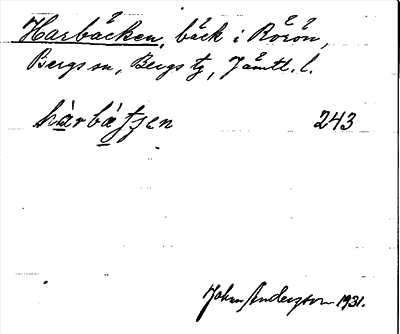 Harbäcken, bäck i Rörön,
Bergs sn, Bergs tg, Jämtl. l.
243
John Anderzson 1931.